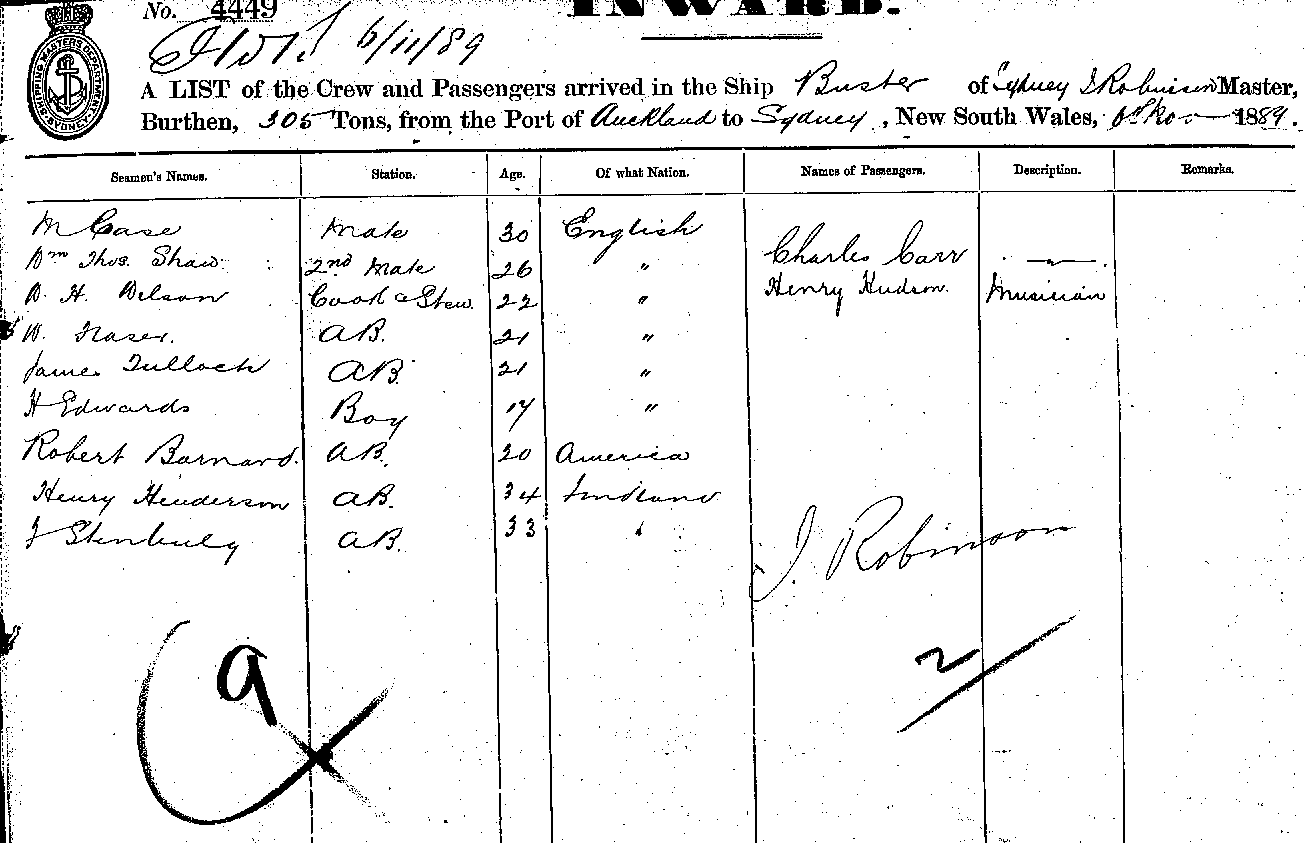 No. 4449 INWARD.
6/11/89
SHIPPING MASTERS DEPARTMENT SYDNEY
A LIST of the Crew and Passengers arrived in the Ship Buster of Sydney J Robinson Master,
Burthen, 305 Tons, from the Port of Auckland to Sydney, New South Wales, 6th Nov 1889.
Seamen's Names. Station. Age. Of what Nation. Names of Passengers. Description. Remarks.
M Case Mate 30 English
Charles Carr —
Wm Thos. Shaw 2nd Mate 26 "
Henry Hudson. Musician
B. H. Belson Cook & Stew. 22 "
W. Fraser. AB. 21 "
James Tulloch AB. 21 "
H Edwards Boy 17 "
Robert Barnard. AB. 20 America
Henry Henderson AB. 34
J AB. 33 "
J. Robinson
9
2